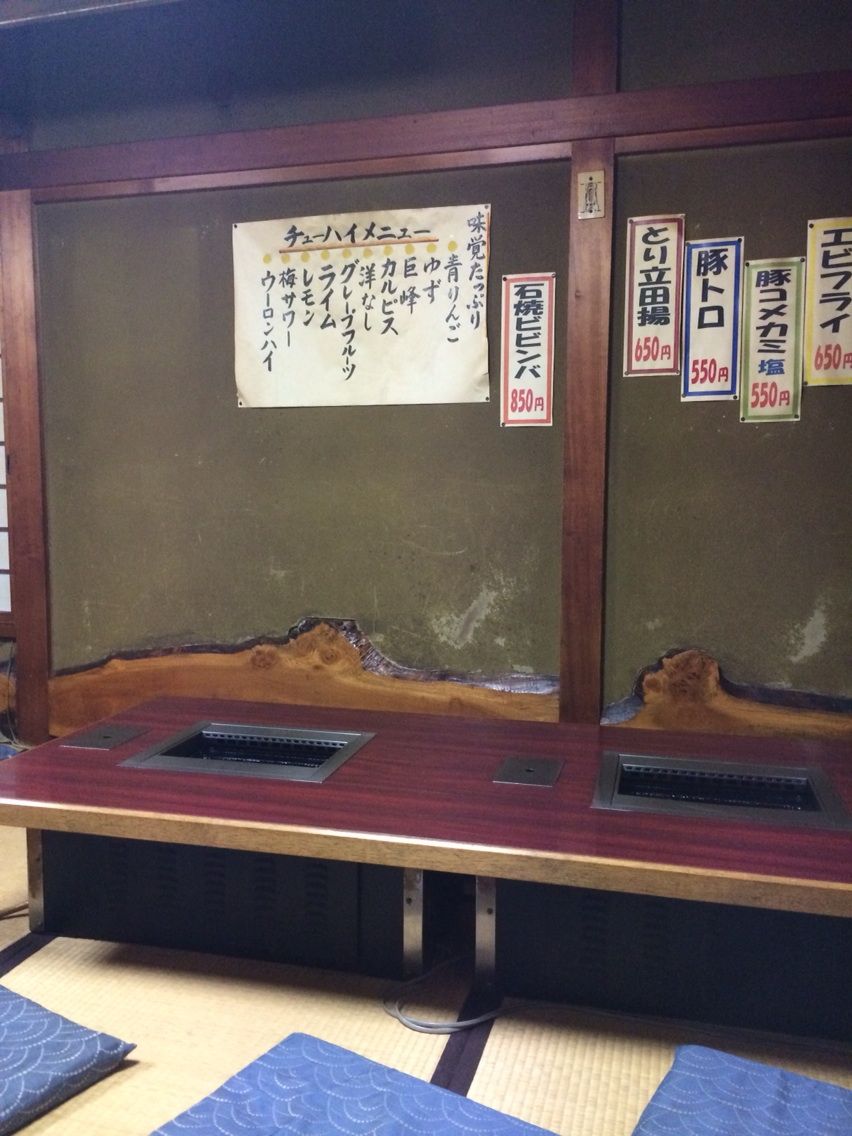 チューハイメニュー
味覚たっぷり
青りんご
ゆず
巨峰
カルピス
洋なし
グレープフルーツ
ライム
レモン
梅サワー
ウーロンハイ
石焼ビビンバ
850円
とり立田揚
650円
豚トロ
550円
豚コメカミ塩
550円
エビフライ
650円